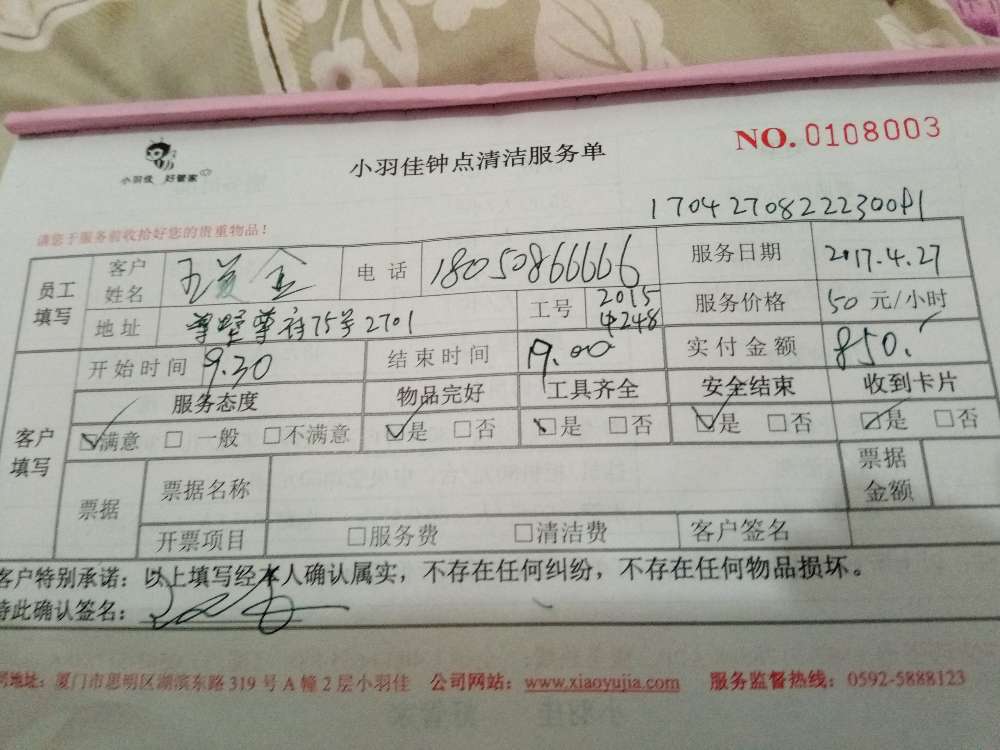 小羽佳 好管家
小羽佳钟点清洁服务单
NO.0108003
17042708222300P1
请您于服务前收拾好您的贵重物品！
员工填写 客户姓名 电话 18050866666 服务日期 2017.4.27
地址 75号2701 工号 20154248 服务价格 50 元/小时
开始时间 9.30 结束时间 19.00 实付金额 850.
客户填写 服务态度 物品完好 工具齐全 安全结束 收到卡片
☑满意 □ 一般 □不满意 ☑是 □否 ☑是 □否 ☑是 □否 ☑是 □否
票据 票据名称 票据金额
开票项目 □服务费 □清洁费 客户签名
客户特别承诺：以上填写经本人确认属实，不存在任何纠纷，不存在任何物品损坏。
特此确认签名：
地址：厦门市思明区湖滨东路319号A幢2层小羽佳 公司网站：www.xiaoyujia.com 服务监督热线：0592-5888123